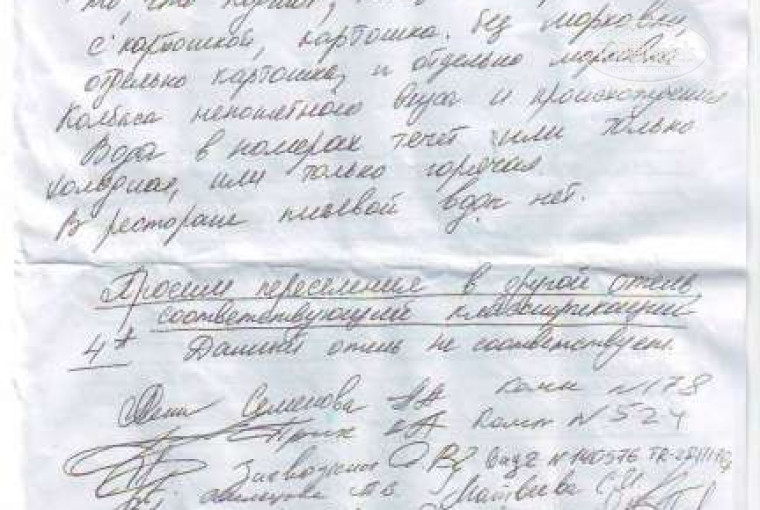 с картошкой, картошка без моркови,
отдельно картошка, и отдельно морковь
Колбаса непонятного вкуса и происхождения
Вода в номерах течет или только
холодная, или только горячая.
В ресторане питьевой воды нет.
Просим переселения в другой отель,
соответствующий классификации
4* Данный отель не соответствует.
Семенова комн N 178
комн N 524
N 140576
Матвеева